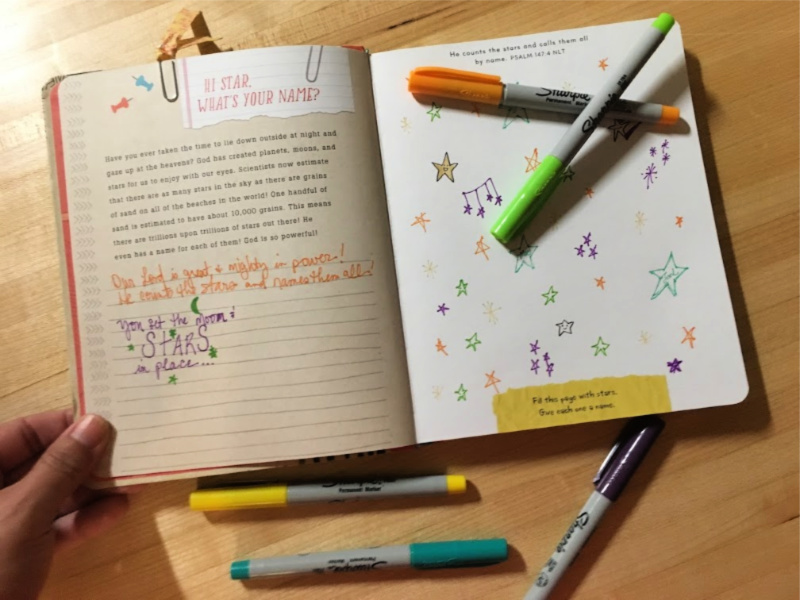 HI STAR,
WHAT'S YOUR NAME?
Have you ever taken the time to lie down outside at night and
gaze up at the heavens? God has created planets, moons, and
stars for us to enjoy with our eyes. Scientists now estimate
that there are as many stars in the sky as there are grains
of sand on all of the beaches in the world! One handful of
sand is estimated to have about 10,000 grains. This means
there are trillions upon trillions of stars out there! He
even has a name for each of them! God is so powerful!
Our Lord is great & mighty in power!
He counts the stars and names them all!
You set the moon &
STARS
in place...
He counts the stars and calls them all
by name. PSALM 147:4 NLT
Sharpie
Permanent Marker
Sharpie
Fill this page with stars.
Give each one a name.
Sharpie
Permanent Marker
Sharpie
Permanent Marker
Sharpie